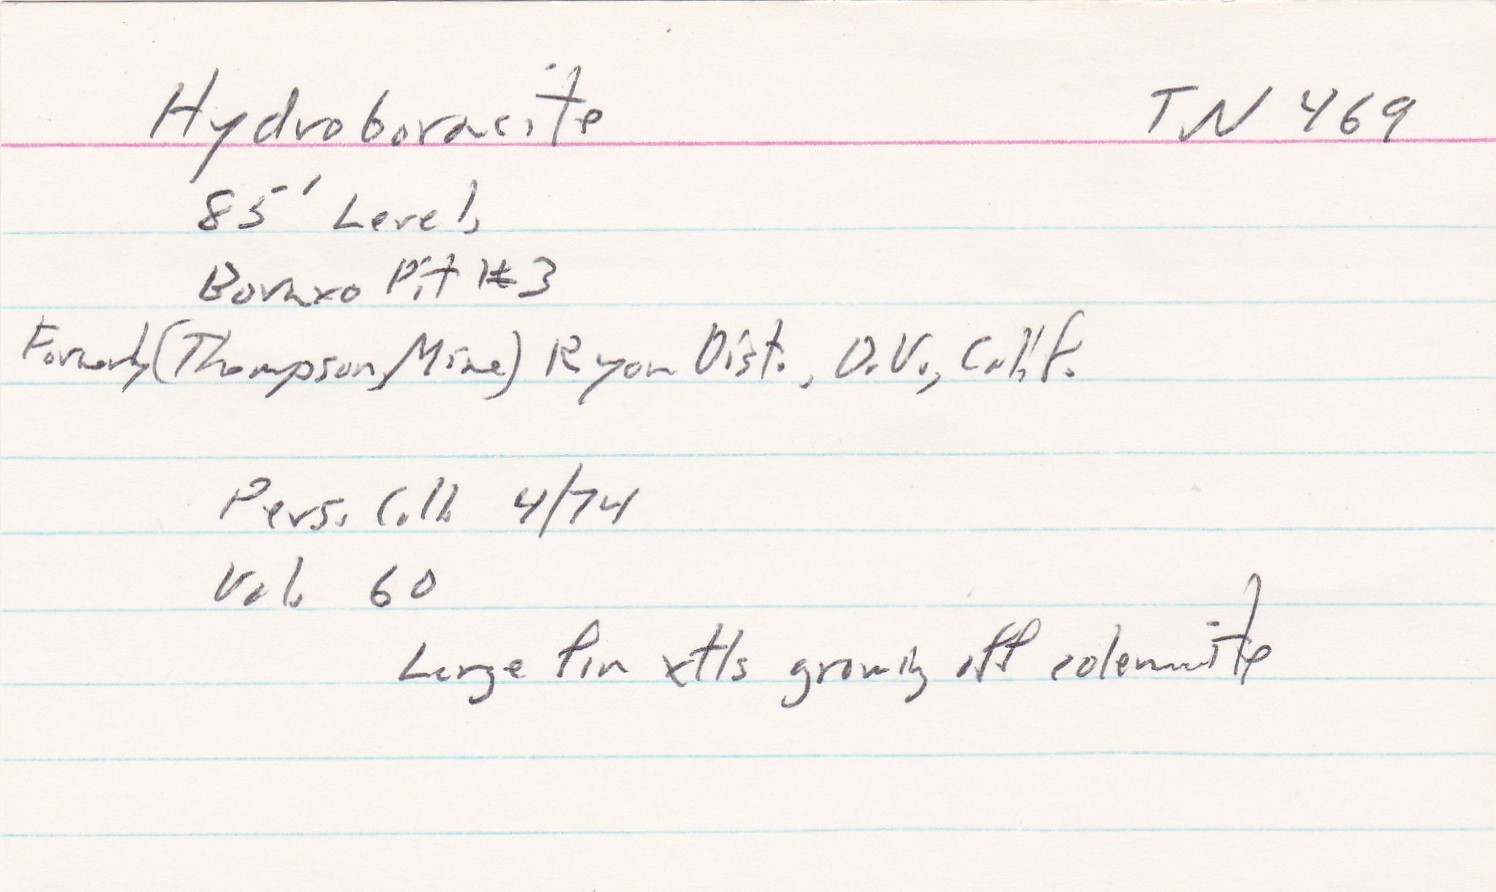 Hydroboracite TN 469
85' Level,
Boraxo Pit #3
Formerly (Thompson Mine) Ryan Dist., D.V., Calif.
Pers. Coll. 4/74
Val. 60
Large fin xtls growing off colemanite